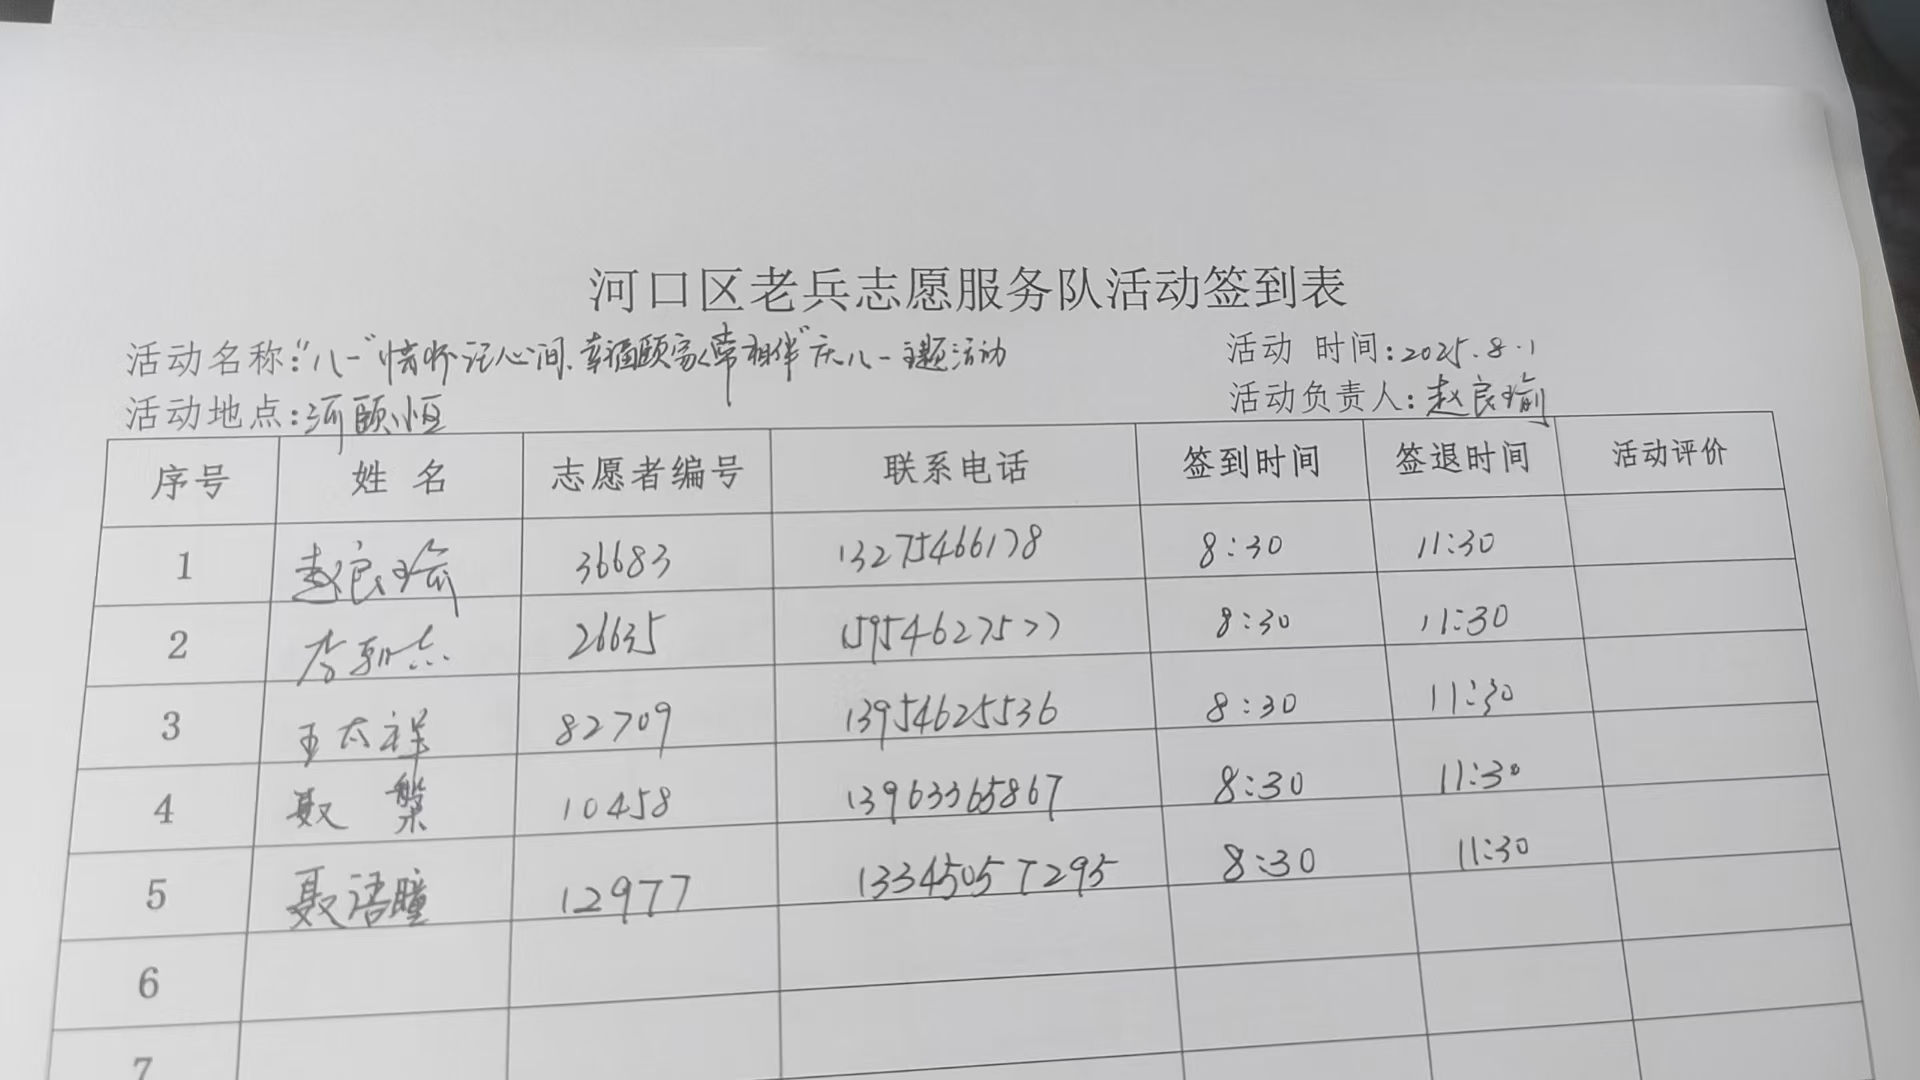 河口区老兵志愿服务队活动签到表
活动名称:“八一”情怀记心间.幸福颐家常相伴”庆八一主题活动
活动时间:2025.8.1
活动地点:河颐小区
活动负责人:赵良瑜
序号 姓名 志愿者编号 联系电话 签到时间 签退时间 活动评价
1 赵良瑜 36683 13275466178 8:30 11:30
2 26635 15954627577 8:30 11:30
3 王太祥 82709 13954625536 8:30 11:30
4 聂 10458 13963365867 8:30 11:30
5 聂语瞳 12977 13345057295 8:30 11:30
6
7